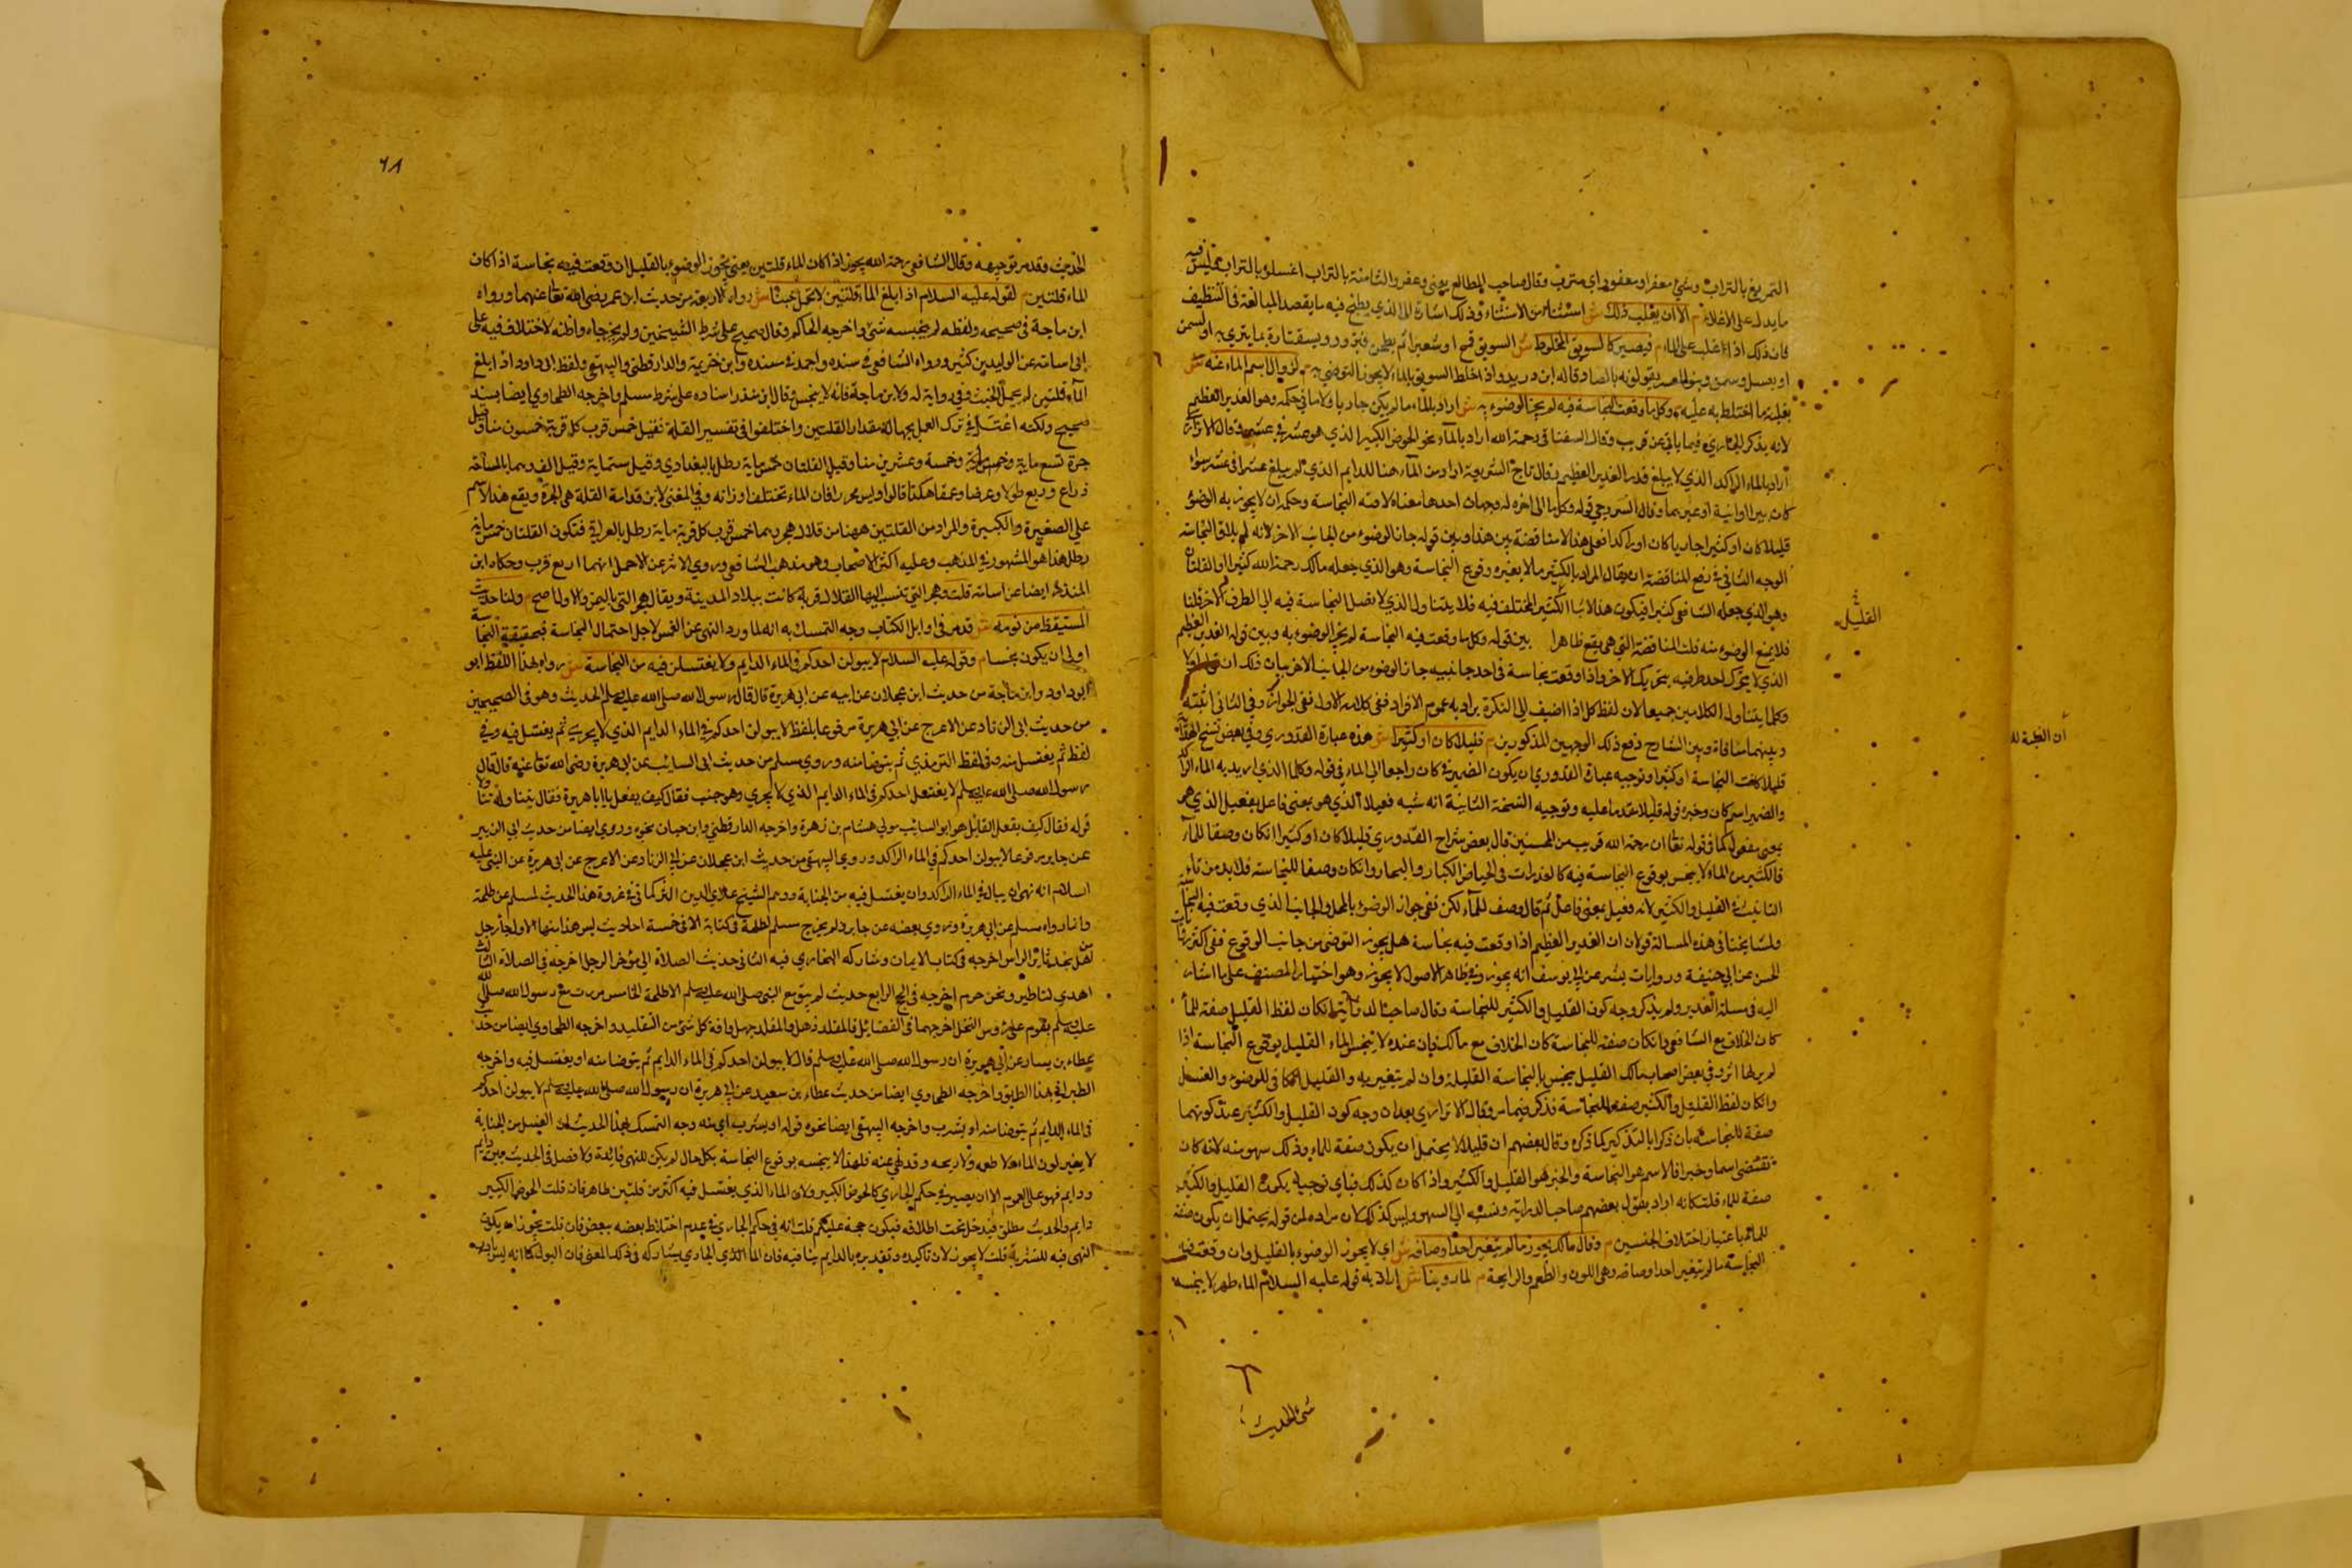 التمريغ بالتراب وشيء معفر او معفور اي مترب وقال صاحب المطالع يعني وعفروا الثامنة بالتراب اغسلوه بالتراب مما ليس فيه
ما يدل على الاغلاء م الا ان يغلب ذلك ش استثناء من الاستثناء وذلك اشارة الى الذي يطبخ فيه ما يقصد المبالغة في التنظيف
فان ذلك اذا غلب على الماء م فيصير كالسويق المخلوط ش السويق قمح او شعير
او بعسل وسمن وبنو العنبر يقولونه بالصاد قاله ابن دريد واذا اختلط السويق بالماء لا يجوز التوضي به م لزوال اسم الماء عنه ش
بغلبة ما اختلط به عليه م وكل ما وقعت النجاسة فيه لم يجز الوضوء به ش اراد بالماء ما لم يكن جاريا ولا ما في حكمه وهو الغدير العظيم
لانه يذكر الجاري فيما ياتي عن قريب وقال السغناقي رحمة الله اراد بالماء نحو الحوض الكبير الذي هو عشر في عشر وقال الاترازي
اراد بالماء الراكد الذي لا يبلغ قدر الغدير العظيم وقال تاج الشريعة اراد من الماء هنا الدايم الذي لم يبلغ عشرا في عشر سواء
كان بين الاوانية او غيرها وقال السروجي قوله وكل ما الى اخره له وجهان احدها معناه لاقته النجاسة وحكمه ان لا يجوز به الوضوء
قليلا كان او كثيرا جاريا كان او راكدا فعلى هذا لا مناقضة بين هذا وبين قوله جاز الوضوء من الجانب الاخر لانه لم يلاق النجاسة
الوجه الثاني في رفع المناقضة ان يقال المراد بالكثير ما لا يغيره وقوع النجاسة وهو الذي جعله مالك رحمة الله كثيرا او القلتان
وهو الذي جعله الشافعي كثيرا فيكون هذا لاثبات الكثير المختلف فيه فلا يتناول الذي لا يصل النجاسة فيه الى الطرف الاخر قلنا
فلا يمنع الوضوء منه قلت المناقضة التي هي يقع ظاهرا بين قوله وكل ما وقعت فيه النجاسة لم يجز الوضوء به وبين قوله الغدير العظيم
الذي لا يتحرك احد طرفيه بتحريك الاخر واذا وقعت نجاسة في احد جانبيه جاز الوضوء من الجانب الاخر بيان ذلك ان قوله اولا
وكل ما يتناول الكلامين جميعا لان لفظ كل اذا اضيف الى النكرة يراد به عموم الافراد ففي كلامه الاول نفي الجواز وفي الثاني اثبته
وبينهما منافاة وبين الشارح دفع ذلك الوجهين المذكورين م قليلا كان او كثيرا ش هذه عبارة القدوري وفي بعض نسخ الهداية
قليلا كانت النجاسة او كثيرا وتوجيه عبارة القدوري ان يكون الضمير في كان راجعا الى الماء في قوله وكل ما الذي اريد به الماء الراكد
والضمير اسم كان وخبره قوله قليلا مقدما عليه وتوجيه النسخة الثانية انه شبه فعيلا الذي هو بمعنى فاعل بفعيل الذي هو
بمعنى مفعول كما في قوله تعالى ان رحمة الله قريب من المحسنين قال بعض شراح القدوري قليلا كان او كثيرا ان كان وصفا للماء
فالكثير من الماء لا ينجس بوقوع النجاسة فيه كالغدرات في الحياض الكبار والبحار وان كان وصفا للنجاسة فلا بد من تاء
التانيث في القليل والكثير لانه فعيل بمعنى فاعل ثم قال وصف للماء لكن نفي جواز الوضوء بالمحل والجانب الذي وقعت فيه النجاسة
ولمشايخنا في هذه المسالة قولان ان الغدير العظيم اذا وقعت فيه نجاسة هل يجوز التوضي من جانب الوقوع ففي اكثر روايات
الحسن عن ابي حنيفة وروايات بشر عن ابي يوسف انه يجوز وفي ظاهر الاصول لا يجوز وهو اختيار المصنف على ما اشار
اليه في مسلة الغدير ولم يذكر وجه كون القليل والكثير للنجاسة وقال صاحب الدراية ان كان لفظ القليل صفة للماء
كان الخلاف مع الشافعي وان كان صفة للنجاسة كان الخلاف مع مالك فان عنده لا ينجس الماء القليل بوقوع النجاسة اذا
لم ير لها اثر وفي بعض اصحاب مالك القليل ينجس بالنجاسة القليلة وان لم يتغير به والقليل الكافي للوضوء والغسل
وان كان لفظ القليل والكثير صفة للنجاسة فذكر فيما مر وقال الاترازي بعد بيان وجه كون القليل والكثير عند كونهما
صفة للنجاسة بان ذكرا بالتذكير كما ذكره وقال بعضهم ان قليلا لا يحتمل ان يكون صفة للماء وذلك سهو منه لانه كان
تقتضي اسما وخبرا فالاسم هو النجاسة والخبر هو القليل والكثير واذا كان كذلك فباي توجيه يكون القليل والكثير
صفة للماء قلت كانه اراد بقول بعضهم صاحب الدراية ونسبه الى السهو وليس كذلك لان مراده من قوله يحتمل ان يكون صفة
للماء باعتبار اختلاف الجنسين م وقال مالك يجوز ما لم يتغير احد اوصافه ش اي لا يجوز الوضوء بالقليل وان وقعت فيه
النجاسة ما لم يتغير احد اوصافه وهي اللون والطعم والرايحة م لما روينا ش اراد به قوله عليه السلام الماء طهور لا ينجسه
شي الحديث
القليل
٦٨
الحديث وقد مر توجيهه وقال الشافعي رحمة الله يجوز اذا كان الماء قلتين يعني يجوز الوضوء بالقليل ان وقعت فيه نجاسة اذا كان
الماء قلتين م لقوله عليه السلام اذا بلغ الماء قلتين لا يحمل خبثا ش رواه الاربعة من حديث ابن عمر رضي الله تعا عنهما ورواه
ابن ماجة في صحيحه ولفظه لم ينجسه شيء واخرجه الحاكم وقال صحيح على شرط الشيخين ولم يخرجاه واظنه لاختلاف فيه على
ابي اسامة عن الوليد بن كثير ورواه الشافعي في سنده واحمد في سنده وابن خزيمة والدارقطني والبيهقي ولفظ ابي داود اذا بلغ
الماء قلتين لم يحمل الخبث وفي رواية له ولابن ماجة فانه لا ينجس وقال ابن منذر اسناده على شرط مسلم واخرجه الطحاوي ايضا بسند
صحيح ولكنه اعتل في ترك العمل بجهالة مقدار القلتين واختلفوا في تفسير القلة فقيل خمس قرب كل قربة خمسون منا وقيل
جرة تسع ماية وخمسة وعشرين منا وقيل القلتان خمس ماية رطل بالبغدادي وقيل ستماية وقيل الف وبالمسافة
ذراع وربع طولا وعرضا وعمقا هكذا قالوا وليس محررا فان الماء تختلف اوزانه وفي المغني لابن قدامة القلة هي الجرة ويقع هذا الاسم
على الصغيرة والكبيرة والمراد من القلتين ههنا من قلال هجر وهما خمس قرب كل قربة ماية رطل بالعراقي فتكون القلتان خمس ماية
رطل هذا هو المشهور في المذهب وعليه اكثر الاصحاب وهو مذهب الشافعي وروى الاثرم عن احمد انهما اربع قرب وحكاه ابن
المنذر ايضا عن اسامة قلت وهجر التي تنسب اليها القلال قرية كانت ببلاد المدينة ويقال هجر التي باليمن والاول اصح م ولنا حديث
المستيقظ من نومه ش قد مر في اوايل الكتاب وجه التمسك به انه لما ورد النهي عن الغمس لاجل احتمال النجاسة فبحقيقة النجاسة
اولى ان يكون نجسا م وقوله عليه السلام لا يبولن احدكم في الماء الدايم ولا يغتسلن فيه من النجاسة ش رواه بهذا اللفظ ابو
ابو داود وابن ماجة من حديث ابن عجلان عن ابيه عن ابي هريرة قال قال رسول الله صلى الله عليه وسلم الحديث وهو في الصحيحين
من حديث ابي الزناد عن الاعرج عن ابي هريرة مرفوعا بلفظ لا يبولن احدكم في الماء الدايم الذي لا يجري ثم يغتسل فيه وفي
لفظ ثم يغتسل منه وفي لفظ الترمذي ثم يتوضا منه وروى مسلم من حديث ابي السائب عن ابي هريرة رضي الله تعا عنه قال قال
رسول الله صلى الله عليه وسلم لا يغتسل احدكم في الماء الدايم الذي لا يجري وهو جنب فقال كيف يفعل يا ابا هريرة فقال يتناوله تناولا
قوله فقال كيف يفعل القايل هو ابو السايب مولى هشام بن زهرة واخرجه الدارقطني وابن حبان نحوه وروي ايضا من حديث ابي الزبير
عن جابر مرفوعا لا يبولن احدكم في الماء الراكد وروى البيهقي من حديث ابن عجلان عن ابي الزناد عن الاعرج عن ابي هريرة عن النبي عليه
السلام انه نهى ان يبال في الماء الراكد وان يغتسل فيه من الجنابة ووهم الشيخ علاي الدين التركماني في عزوه هذا الحديث لمسلم عن طلحة
وانما رواه مسلم عن ابي هريرة وروى بعضه عن جابر ولم يخرج مسلم لطلحة في كتابه الا في خمسة احاديث ليس هذا منها الاول جاء رجل
من اهل نجد ثائر الراس اخرجه في كتاب الايمان وشاركه البخاري فيه الثاني حديث الصلاة الى مؤخر الرحل اخرجه في الصلاة الثالث
اهدي لنا طير ونحن حرم اخرجه في الحج الرابع حديث لم يبق مع النبي صلى الله عليه وسلم الا طلحة الخامس مررت مع رسول الله صلى الله
عليه وسلم بقوم على رؤس النخل اخرجهما في الفضايل فالمقلد ذهل والمقلد جهل وافة كل شي من التقليد واخرجه الطحاوي ايضا من حديث
عطاء بن يسار عن ابي هريرة ان رسول الله صلى الله عليه وسلم قال لا يبولن احدكم في الماء الدايم ثم يتوضا منه او يغتسل فيه واخرجه
الطبراني بهذا الطريق واخرجه الطحاوي ايضا من حديث عطاء بن سعيد عن ابي هريرة ان رسول الله صلى الله عليه وسلم لا يبولن احدكم
في الماء الدايم ثم يتوضا منه او يشرب واخرجه البيهقي ايضا نحوه قوله او يشرب اي منه وجه التمسك بهذا الحديث ان الغسل من الجنابة
لا يغير لون الماء ولا طعمه ولا ريحه وقد نهي عنه فلهذا لا ينجسه بوقوع النجاسة بكل حال لم يكن للنهي فائدة ولا فصل في الحديث بين دايم
ودايم فهو على العموم الا ان يصير في حكم الجاري كالحوض الكبير ولان الماء الذي يغتسل فيه اكثر من قلتين ظاهرا فان قلت الحوض الكبير
دايم والحديث مطلق فيدخل تحت اطلاقه فيكون حجة عليكم قلت انه في حكم الجاري في عدم اختلاط بعضه ببعض فان قلت يجوز ان يكون
النهي فيه للتنزيه قلت لا يجوز لان تاكيده وتقديره بالدايم ينافيه فان الماء الذي الجاري يشاركه في ذلك المعنى فان البول كما انه ليس